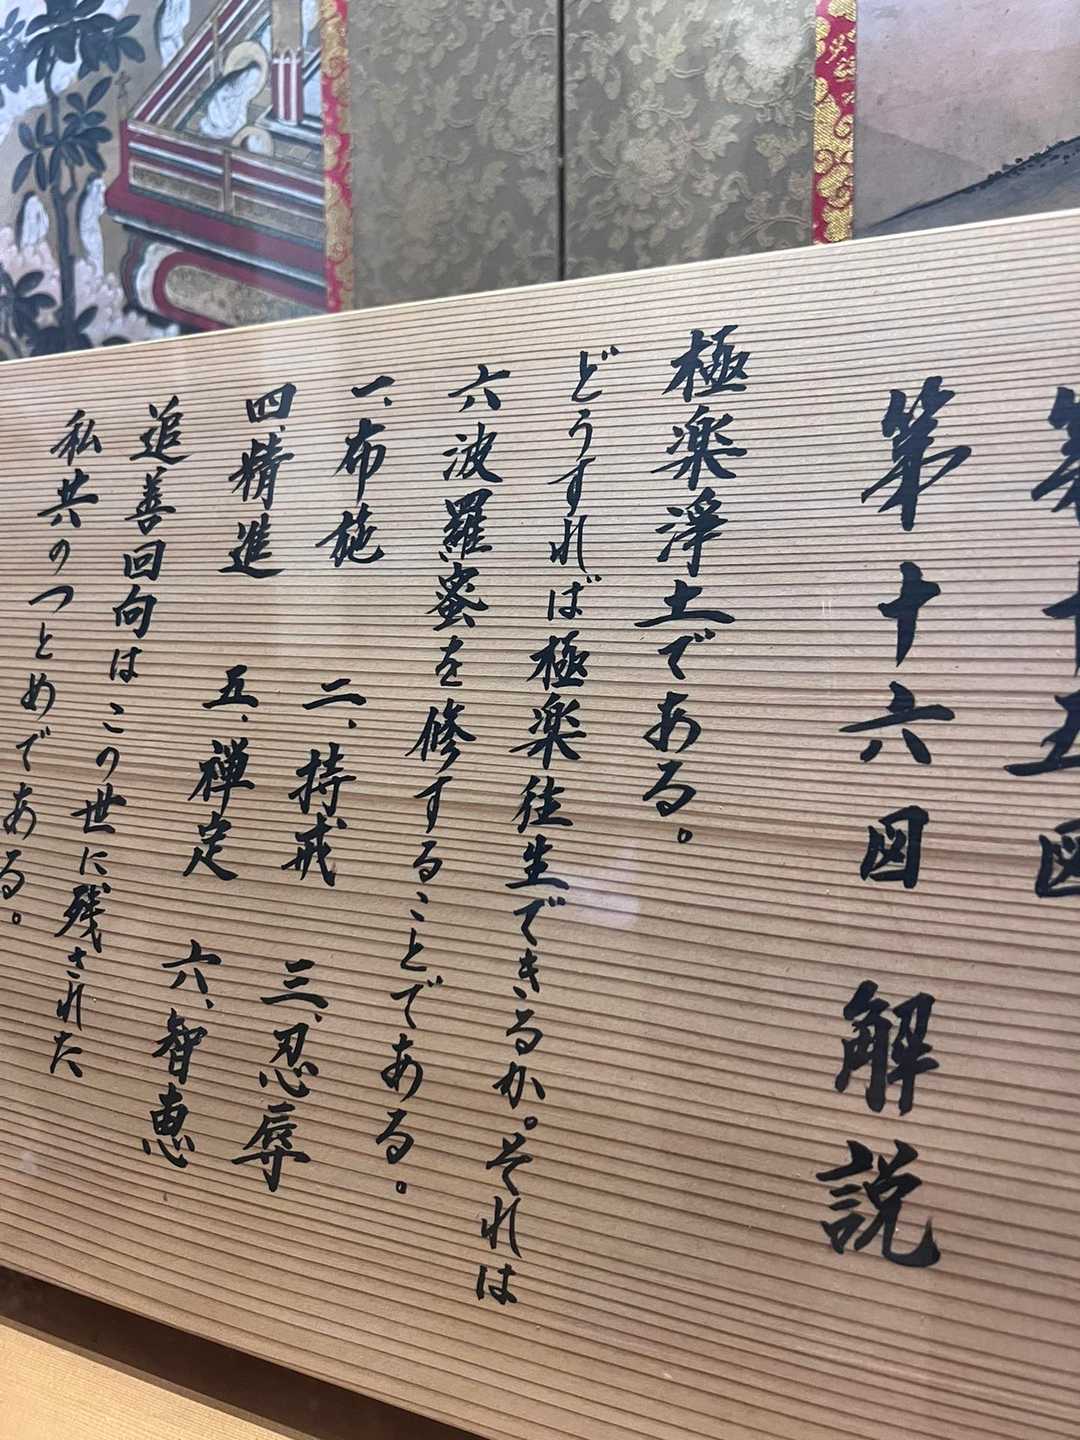 第十五図
第十六図 解説
極楽浄土である。
どうすれば極楽往生できるか。それは
六波羅蜜を修することである。
一、布施 二、持戒 三、忍辱
四、精進 五、禅定 六、智恵
追善回向はこの世に残された
私共のつとめである。